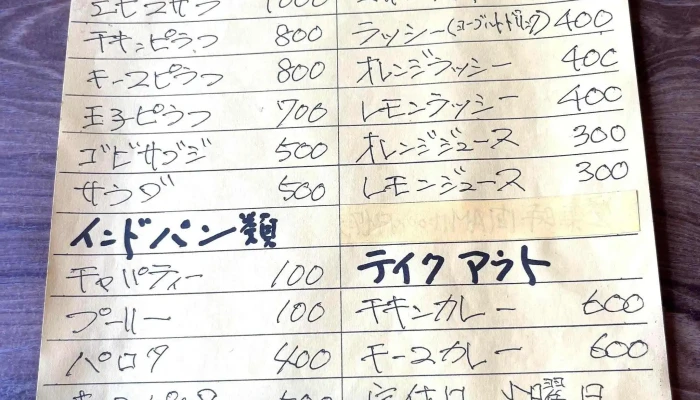 1000
チキンピラフ 800
キースピラフ 800
玉子ピラフ 700
ゴビサブジ 500
サラダ 500
インドパン類
チャパティー 100
プーリー 100
パロタ 400
ラッシー(ヨーグルトドリンク) 400
オレンジラッシー 400
レモンラッシー 400
オレンジジュース 300
レモンジュース 300
テイクアウト
チキンカレー 600
キースカレー 600
定休日 火曜日